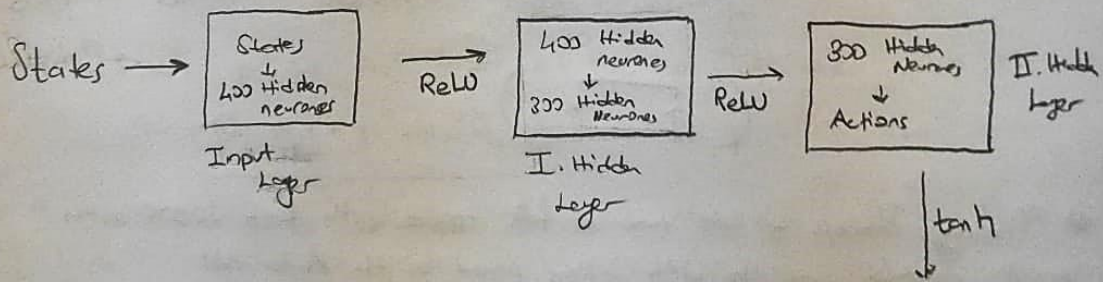 States
States
400 Hidden
neurones
Input
Layer
ReLU
400 Hidden
neurones
300 Hidden
Neurones
I. Hidden
Layer
ReLU
300 Hidden
Neurones
Actions
II. Hidden
Layer
tanh